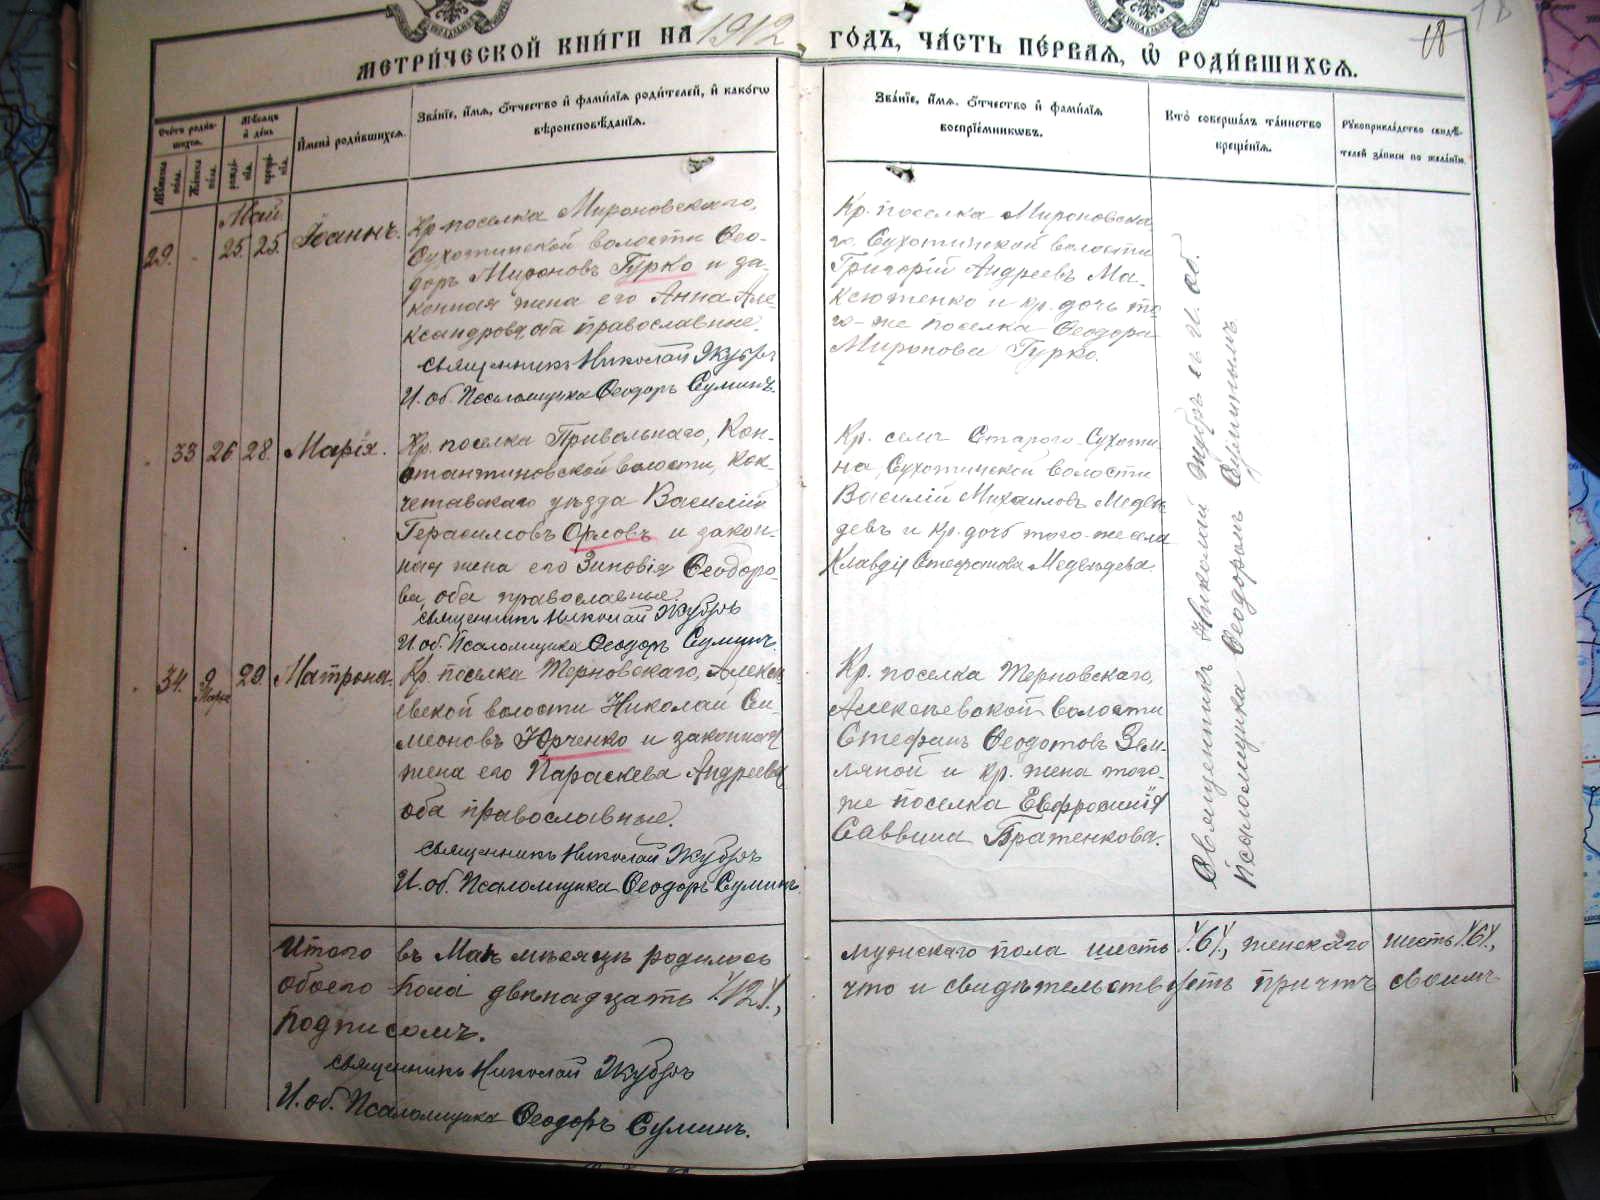 МЕТРИ́ЧЕСКОЙ КНИ́ГИ НА 1912 ГО́ДЪ, ЧА́СТЬ ПЕ́РВАЯ, Ѡ РОДИ́ВШИХСЯ.
18
18
Счетъ родившихся.
Мужеска пола.
Женска пола.
Мѣсяцъ и день
рожденія.
крещенія.
Имена родившихся.
Званіе, имя, отчество и фамилія родителей, и какогѡ
вѣроисповѣданія.
Званіе, имя, отчество и фамилія
воспріемниковъ.
Кто совершалъ таинство
крещенія.
Рукоприкладство свидѣ-
телей записи по желанію.
Май.
29. - 25. 25. Іоаннъ.
Кр. поселка Мироновскаго,
Сухотинской волости Ѳео-
доръ Мироновъ Гурко и за-
конная жена его Анна Але-
ксандрова, оба православные.
Священникъ Николай Жубръ
И. об. Псаломщика Ѳеодоръ Суминъ.
Кр. поселка Мироновска
го, Сухотинской волости
Григорій Андреевъ Ма-
ксютенко и кр. дочь то
го-же поселка Ѳеодора
Миронова Гурко.
33 26 28 Марія.
Кр. поселка Привольнаго, Кон-
стантиновской волости, Кок-
четавскаго уѣзда Василій
Герасимовъ Орловъ и закон-
ная жена его Зиновія Ѳеодоро-
ва, оба православные.
Священникъ Николай Жубръ
И. об. Псаломщика Ѳеодоръ Суминъ.
Кр. села Стараго-Сухоти
на, Сухотинской волости
Василій Михаиловъ Медвѣ
девъ и кр. дочь того-же села
Клавдія Стефанова Медвѣдева.
34. 9 Марта 29. Матрона.
Кр. поселка Терновскаго, Алексѣ
евской волости Николай Си-
меоновъ Юрченко и законная
жена его Параскева Андреева
оба православные.
Священникъ Николай Жубръ
И. об. Псаломщика Ѳеодоръ Суминъ.
Кр. поселка Терновскаго,
Алексѣевской волости
Стефанъ Ѳеодотовъ Зем-
ляной и кр. жена того-
же поселка Евфросинія
Саввина Браженкова.
Священникъ Николай Жубръ и И. об.
Псаломщика Ѳеодоръ Суминъ.
Итого въ Маѣ мѣсяцѣ родилось мужскаго пола шесть /6/, женскаго шесть /6/,
обоего пола двѣнадцать /12/, что и свидѣтельствуетъ причтъ своимъ
подписомъ.
Священникъ Николай Жубръ
И. об. Псаломщика Ѳеодоръ Суминъ.